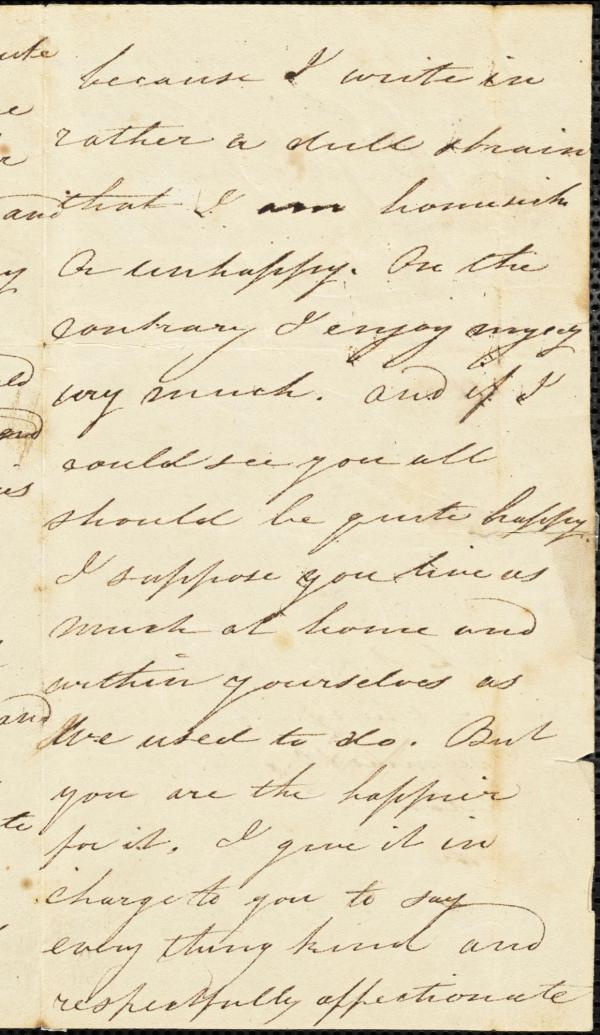 because I write in
rather a dull strain
that I am homesick
or unhappy. On the
contrary I enjoy myself
very much. and if I
could see you all
should be quite happy.
I suppose you live as
much at home and
within yourselves as
we used to do. But
you are the happier
for it. I give it in
charge to you to say
every thing kind and
respectfully affectionate